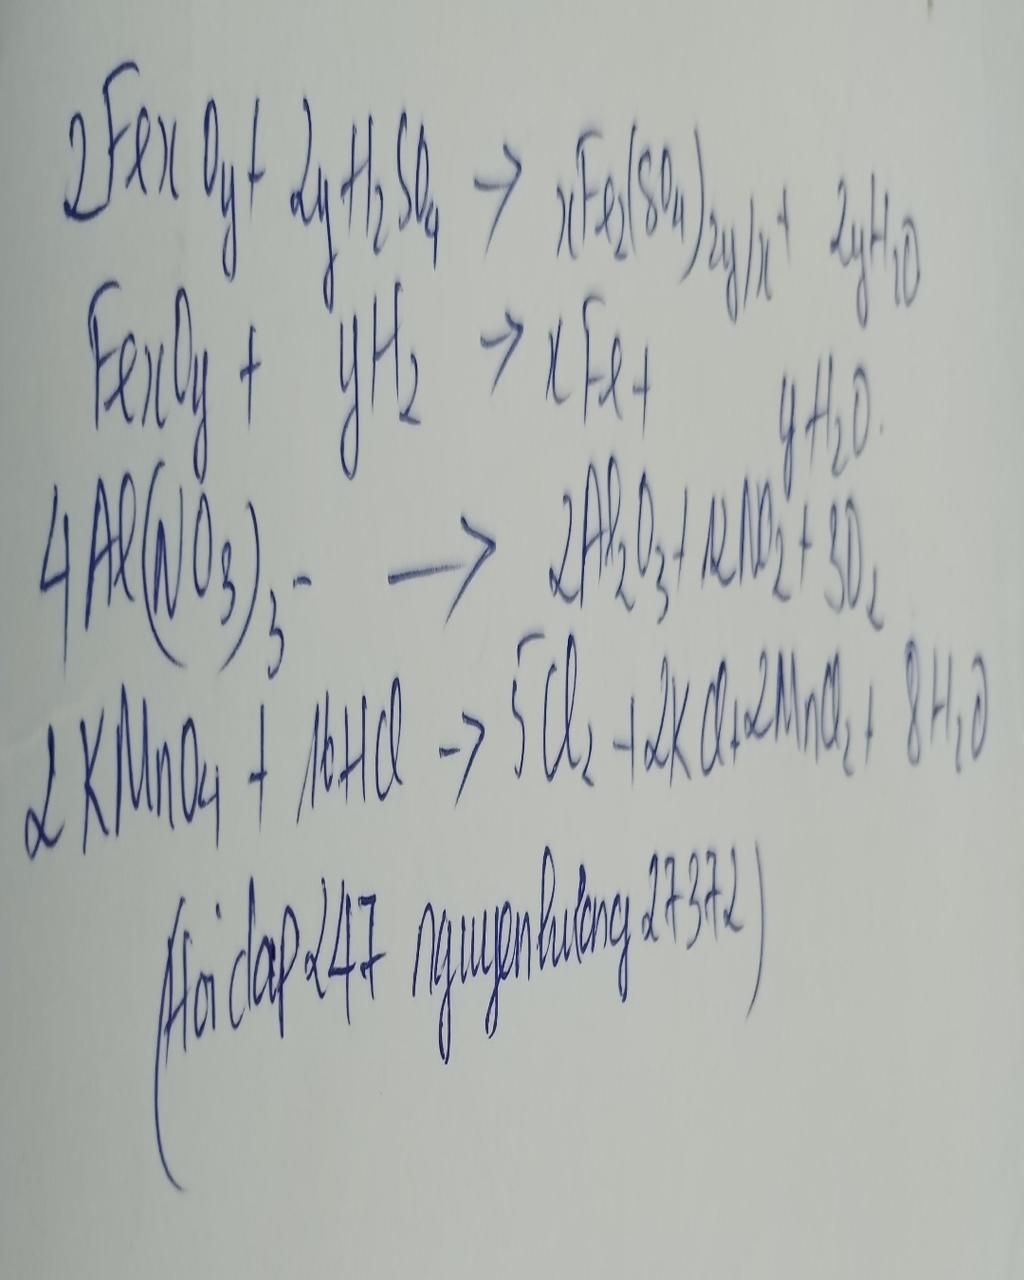 2FexOy + 2yH2SO4 → xFe2(SO4)2y/x + 2yH2O
FexOy + yH2 → xFe + yH2O.
4Al(NO3)3 → 2Al2O3 + 12NO2 + 3O2
2KMnO4 + 16HCl → 5Cl2 + 2KCl + 2MnCl2 + 8H2O
(Hoidap247 nguyenhuong27372)